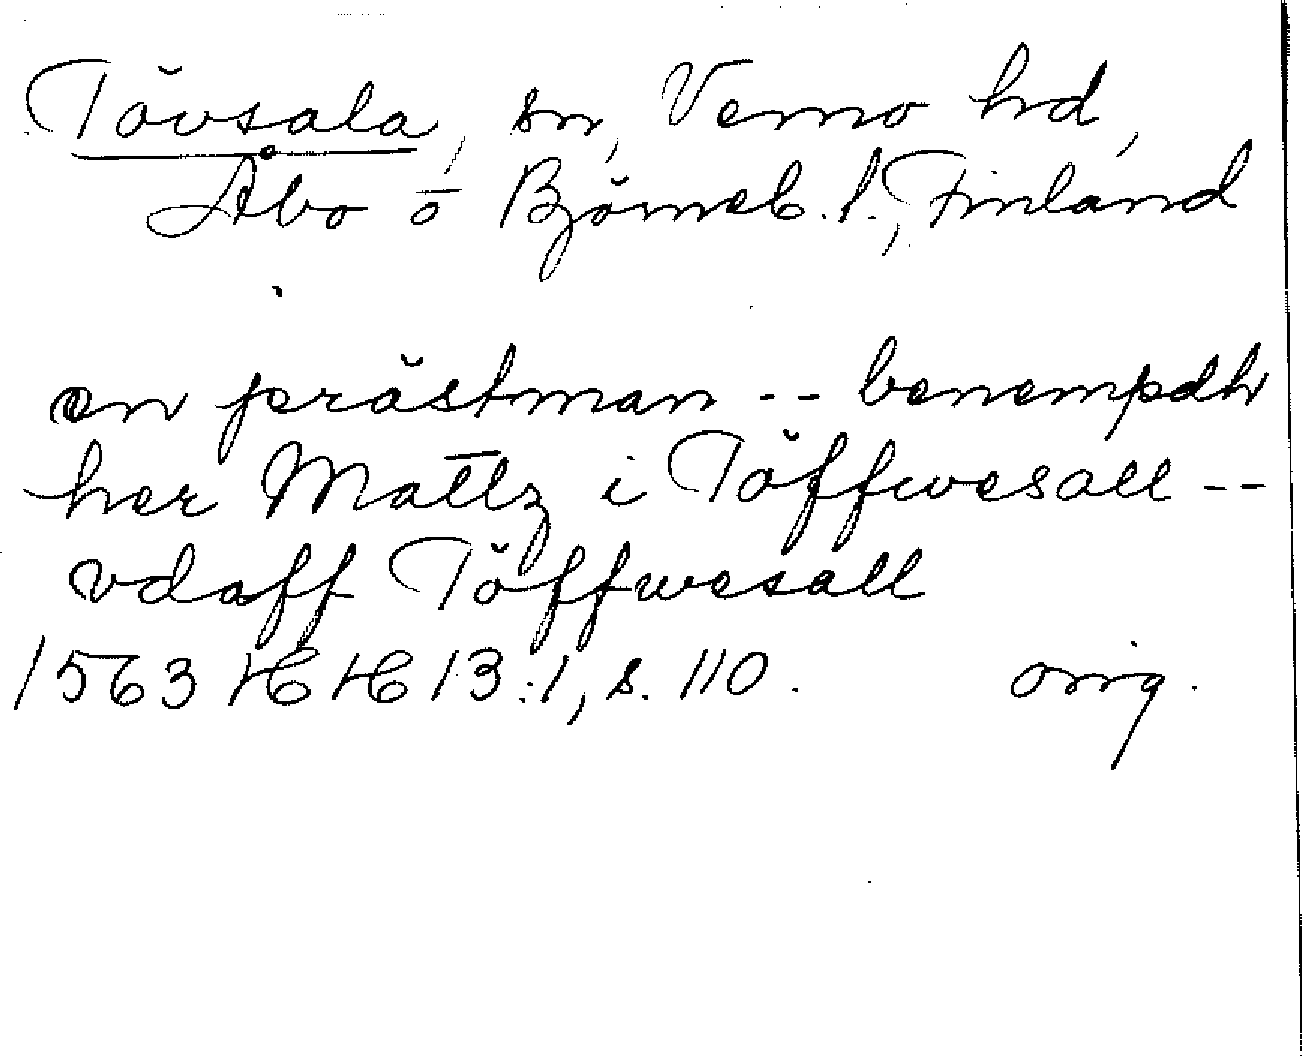 Tövsala, sn, Vemo hd,
Åbo o Björneb. l., Finland
en prästman -- benempdh
her Mattz i Töffwesall --
vdaff Töffwesall
1563 HH 13:1, s. 110. orig.